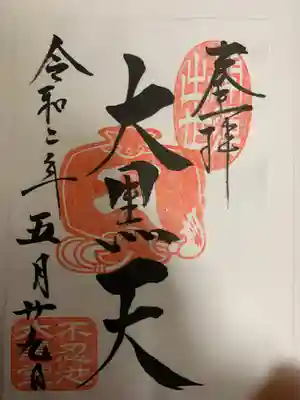 奉拝
大黒天
令和二年五月廿九日
不忍池
大黒堂